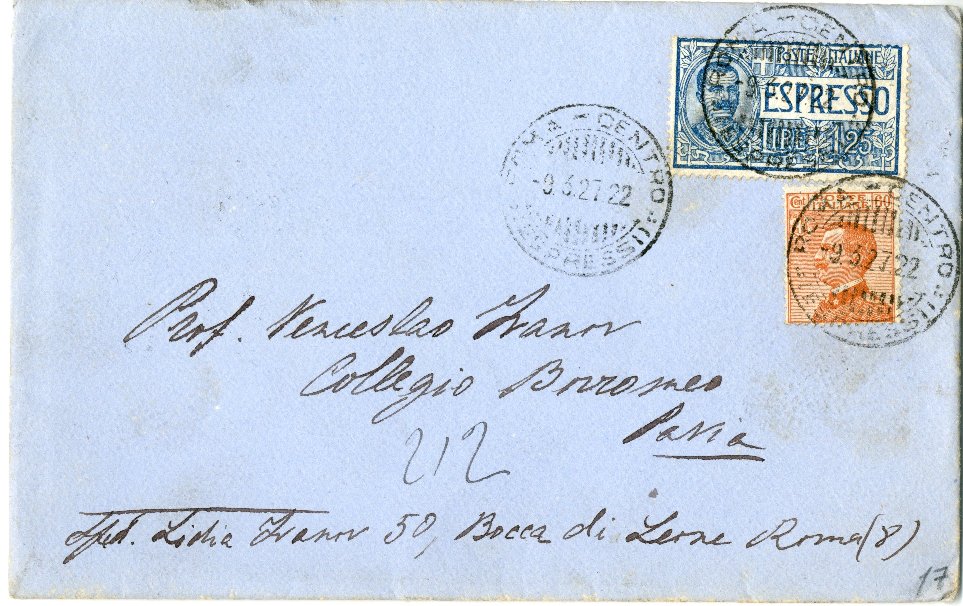 POSTE ITALIANE
ESPRESSO
LIRE 1,25
ROMA - CENTRO
-9.3.27.22
ESPRESSI
ROMA - CENTRO
-9.3.27.22
ESPRESSI
Prof. Venceslao Ivanov
Collegio Borromeo
Pavia
212
Sped. Lidia Ivanov 50, Bocca di Leone Roma (8)
17